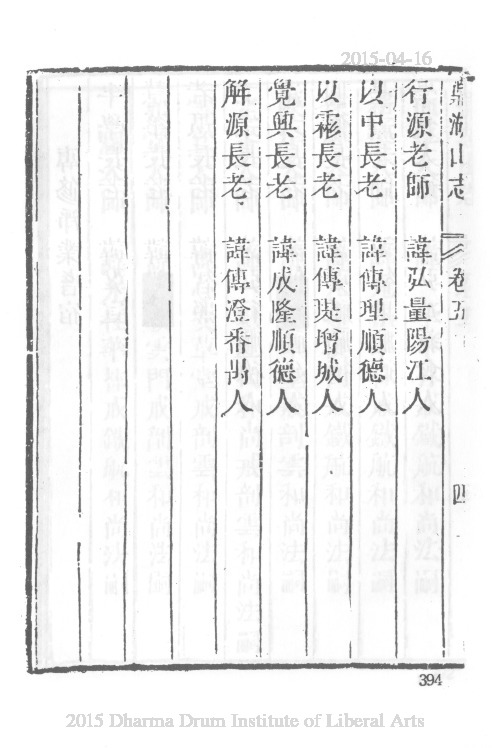 2015-04-16
鼎湖山志 卷五 四
行源老師 諱弘量陽江人
以中長老 諱傳理順德人
以霖長老 諱傳琨增城人
覺興長老 諱成隆順德人
解源長老 諱傳澄番禺人
394
2015 Dharma Drum Institute of Liberal Arts